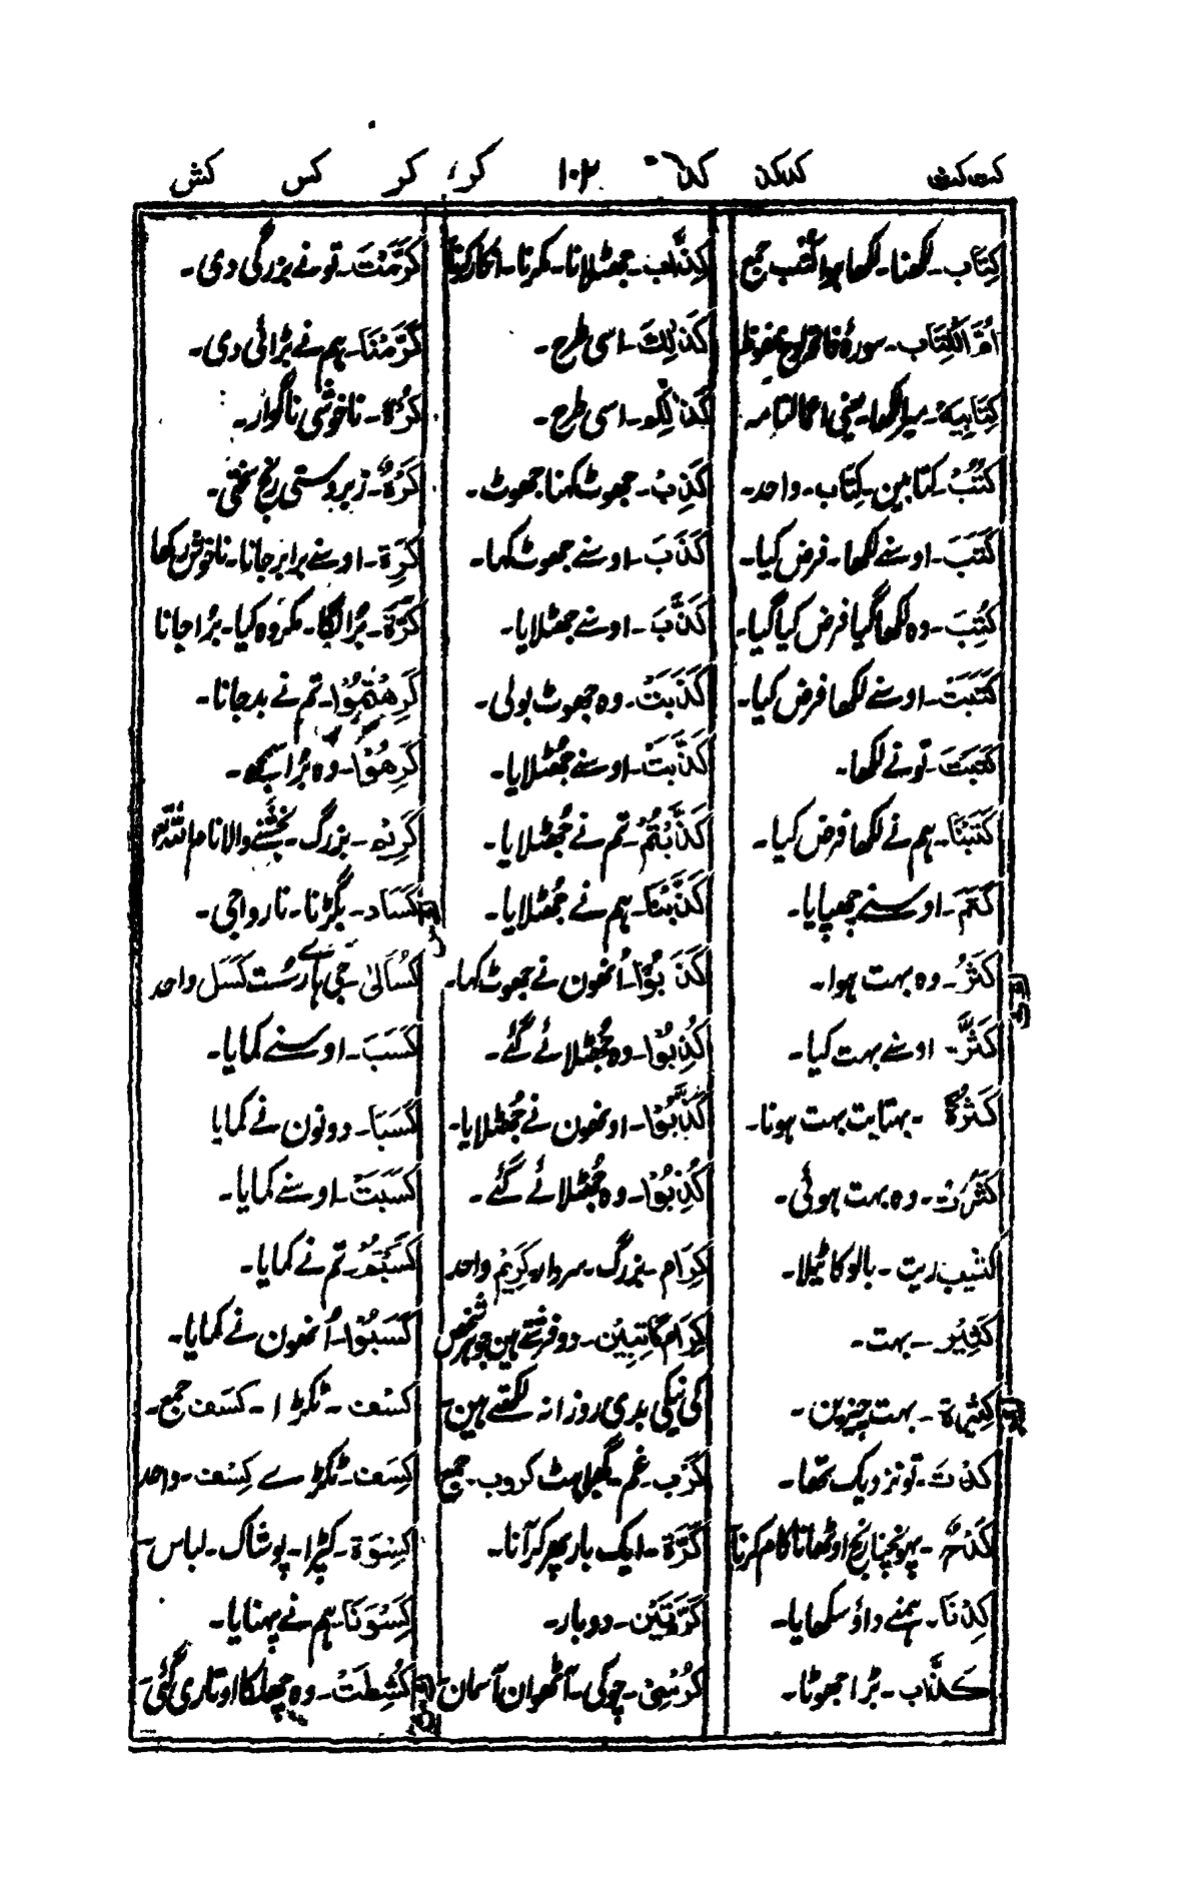 کت کث کد کذ کذ ۱۰۲ کر کر کس کش
کِتَاب۔ لکھنا۔ لکھا ہوا کُتُب جمع
اُمُّ الْکِتَاب۔ سورۂ فاتحہ لوح محفوظ
کِتَابِیَہْ۔ میرا لکھا۔ یعنی اعمالنامہ
کُتُبٌ۔ کتابین۔ کِتَاب۔ واحد۔
کَتَبَ۔ اوسنے لکھا۔ فرض کیا۔
کُتِبَ۔ وہ لکھا گیا فرض کیا گیا۔
کَتَبَتْ۔ اوسنے لکھا فرض کیا۔
کَتَبْتَ۔ تونے لکھا۔
کَتَبْنَا۔ ہم نے لکھا فرض کیا۔
کَتَمَ۔ اوسنے چھپایا۔
کَثُرَ۔ وہ بہت ہوا۔
کَثَّرَ۔ اوسنے بہت کیا۔
کَثْرَةٌ۔ بہتایت بہت ہونا۔
کَثُرَتْ۔ وہ بہت ہوئی۔
کثیب۔ ریت۔ بالو کا ٹیلا۔
کَثِیْر۔ بہت۔
کثیرة۔ بہت چیزین۔
کِدْتَ۔ تو نزدیک تھا۔
کَدْحٌ۔ پہونچنا رنج اوٹھانا کام کرنا
کِدْنَا۔ ہمنے داؤ سکھایا۔
کَذَّاب۔ بڑا جھوٹا۔
کِذَّاب۔ جھٹلانا۔ مکرنا۔ انکار کرنا
کَذٰلِکَ۔ اسی طرح۔
کَذٰلِکُم۔ اسی طرح۔
کَذِبٌ۔ جھوٹ کہنا جھوٹ۔
کَذَبَ۔ اوسنے جھوٹ کہا۔
کَذَّبَ۔ اوسنے جھٹلایا۔
کَذَبَتْ۔ وہ جھوٹ بولی۔
کَذَّبَتْ۔ اوسنے جُھٹلایا۔
کَذَّبْتُمْ۔ تم نے جُھٹلایا۔
کَذَّبْنَا۔ ہم نے جُھٹلایا۔
کَذَبُوْا۔ اُنھون نے جھوٹ کہا۔
کُذِبُوْا۔ وہ جُھٹلائے گئے۔
کَذَّبُوْا۔ اونھون نے جُھٹلایا۔
کُذِّبُوْا۔ وہ جُھٹلائے گئے۔
کِرَام۔ بزرگ۔ سردار کَرِیْم واحد
کِرَام کَاتِبِیْن۔ دو فرشتے ہین جو ہر شخص
کی نیکی بدی روزانہ لکھتے ہین۔
کَرْب۔ غم۔ گھبراہٹ کروب۔ جمع
کَرَّة۔ ایک بار پھر کر آنا۔
کَرَّتَیْن۔ دو بار۔
کُرْسِیّ۔ چوکی۔ آٹھوان آسمان۔
کَرَّمْتَ۔ تو نے بزرگی دی۔
کَرَّمْنَا۔ ہم نے بڑائی دی۔
کُرْہٌ۔ ناخوشی ناگوار۔
کَرْہٌ۔ زبردستی رنج سختی۔
کَرِہَ۔ اوسنے برا بر جانا۔ ناخوش رکھا
کَرَّہَ۔ بُرا لگا۔ مکروہ کیا۔ بُرا جانا
کَرِهْتُمُوْا۔ تم نے بد جانا۔
کَرِهُوْا۔ وہ بُرا سمجھے۔
کَرِیْم۔ بزرگ۔ بخشنے والا نام اللہ
کَسَاد۔ بگڑنا۔ نارواجی۔
کُسَالٰی۔ جی ہارے سُست کَسَل واحد
کَسَبَ۔ اوسنے کمایا۔
کَسَبَا۔ دونون نے کمایا
کَسَبَتْ۔ اوسنے کمایا۔
کَسَبْتُمْ۔ تم نے کمایا۔
کَسَبُوْا۔ اُنھون نے کمایا۔
کسْف۔ ٹکڑا۔ کسَف جمع۔
کِسَف۔ ٹکڑے کِسْف۔ واحد
کِسْوَة۔ کپڑا۔ پوشاک۔ لباس۔
کَسَوْنَا۔ ہم نے پہنایا۔
کُشِطَتْ۔ وہ چھلکا اوتاری گئی۔